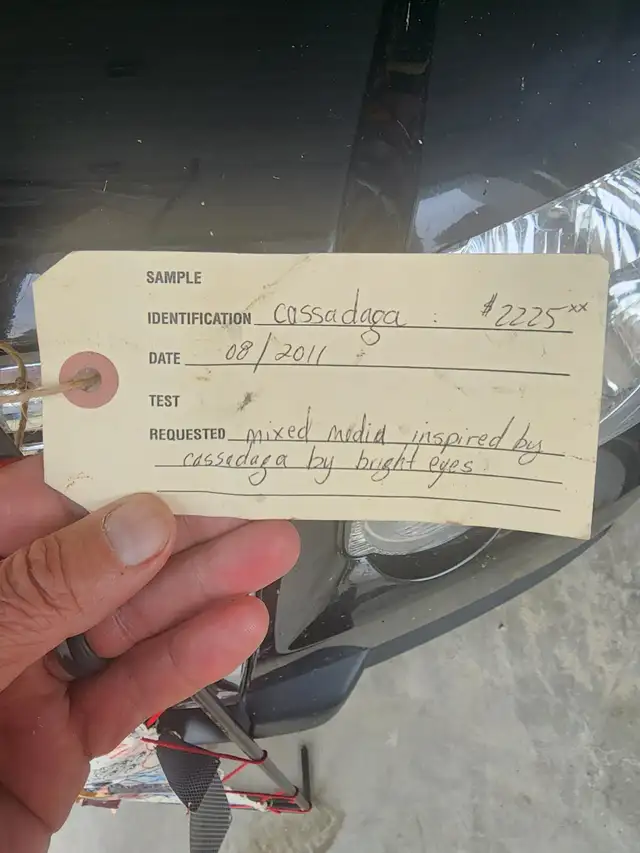 SAMPLE
IDENTIFICATION cassadaga : $2225xx
DATE 08/2011
TEST
REQUESTED mixed media inspired by
cassadaga by bright eyes